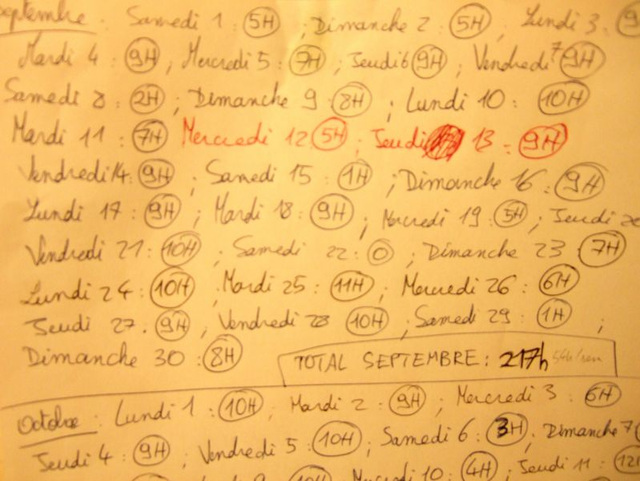 Septembre : Samedi 1 : 5H ; Dimanche 2 : 5H ; Lundi 3 : 9
Mardi 4 : 9H ; Mercredi 5 : 7H ; Jeudi 6 9H ; Vendredi 7 9H
Samedi 8 : 2H ; Dimanche 9 : 8H ; Lundi 10 : 10H
Mardi 11 : 7H Mercredi 12 5H ; Jeudi 13 : 9H
Vendredi 14 : 9H ; Samedi 15 : 1H ; Dimanche 16 : 9H
Lundi 17 : 9H ; Mardi 18 : 9H ; Mercredi 19 : 5H ; Jeudi 20
Vendredi 21 : 10H ; Samedi 22 : 0 ; Dimanche 23 : 7H
Lundi 24 : 10H Mardi 25 : 11H , Mercredi 26 : 6H
Jeudi 27 : 9H , Vendredi 28 10H , Samedi 29 : 1H ;
Dimanche 30 : 8H TOTAL SEPTEMBRE : 217h
Octobre : Lundi 1 : 10H ; Mardi 2 : 9H ; Mercredi 3 : 6H
Jeudi 4 : 9H , Vendredi 5 : 10H ; Samedi 6 : 3H ; Dimanche 7
9 : 10H Mercredi 10 : 4H ; Jeudi 11 : 12